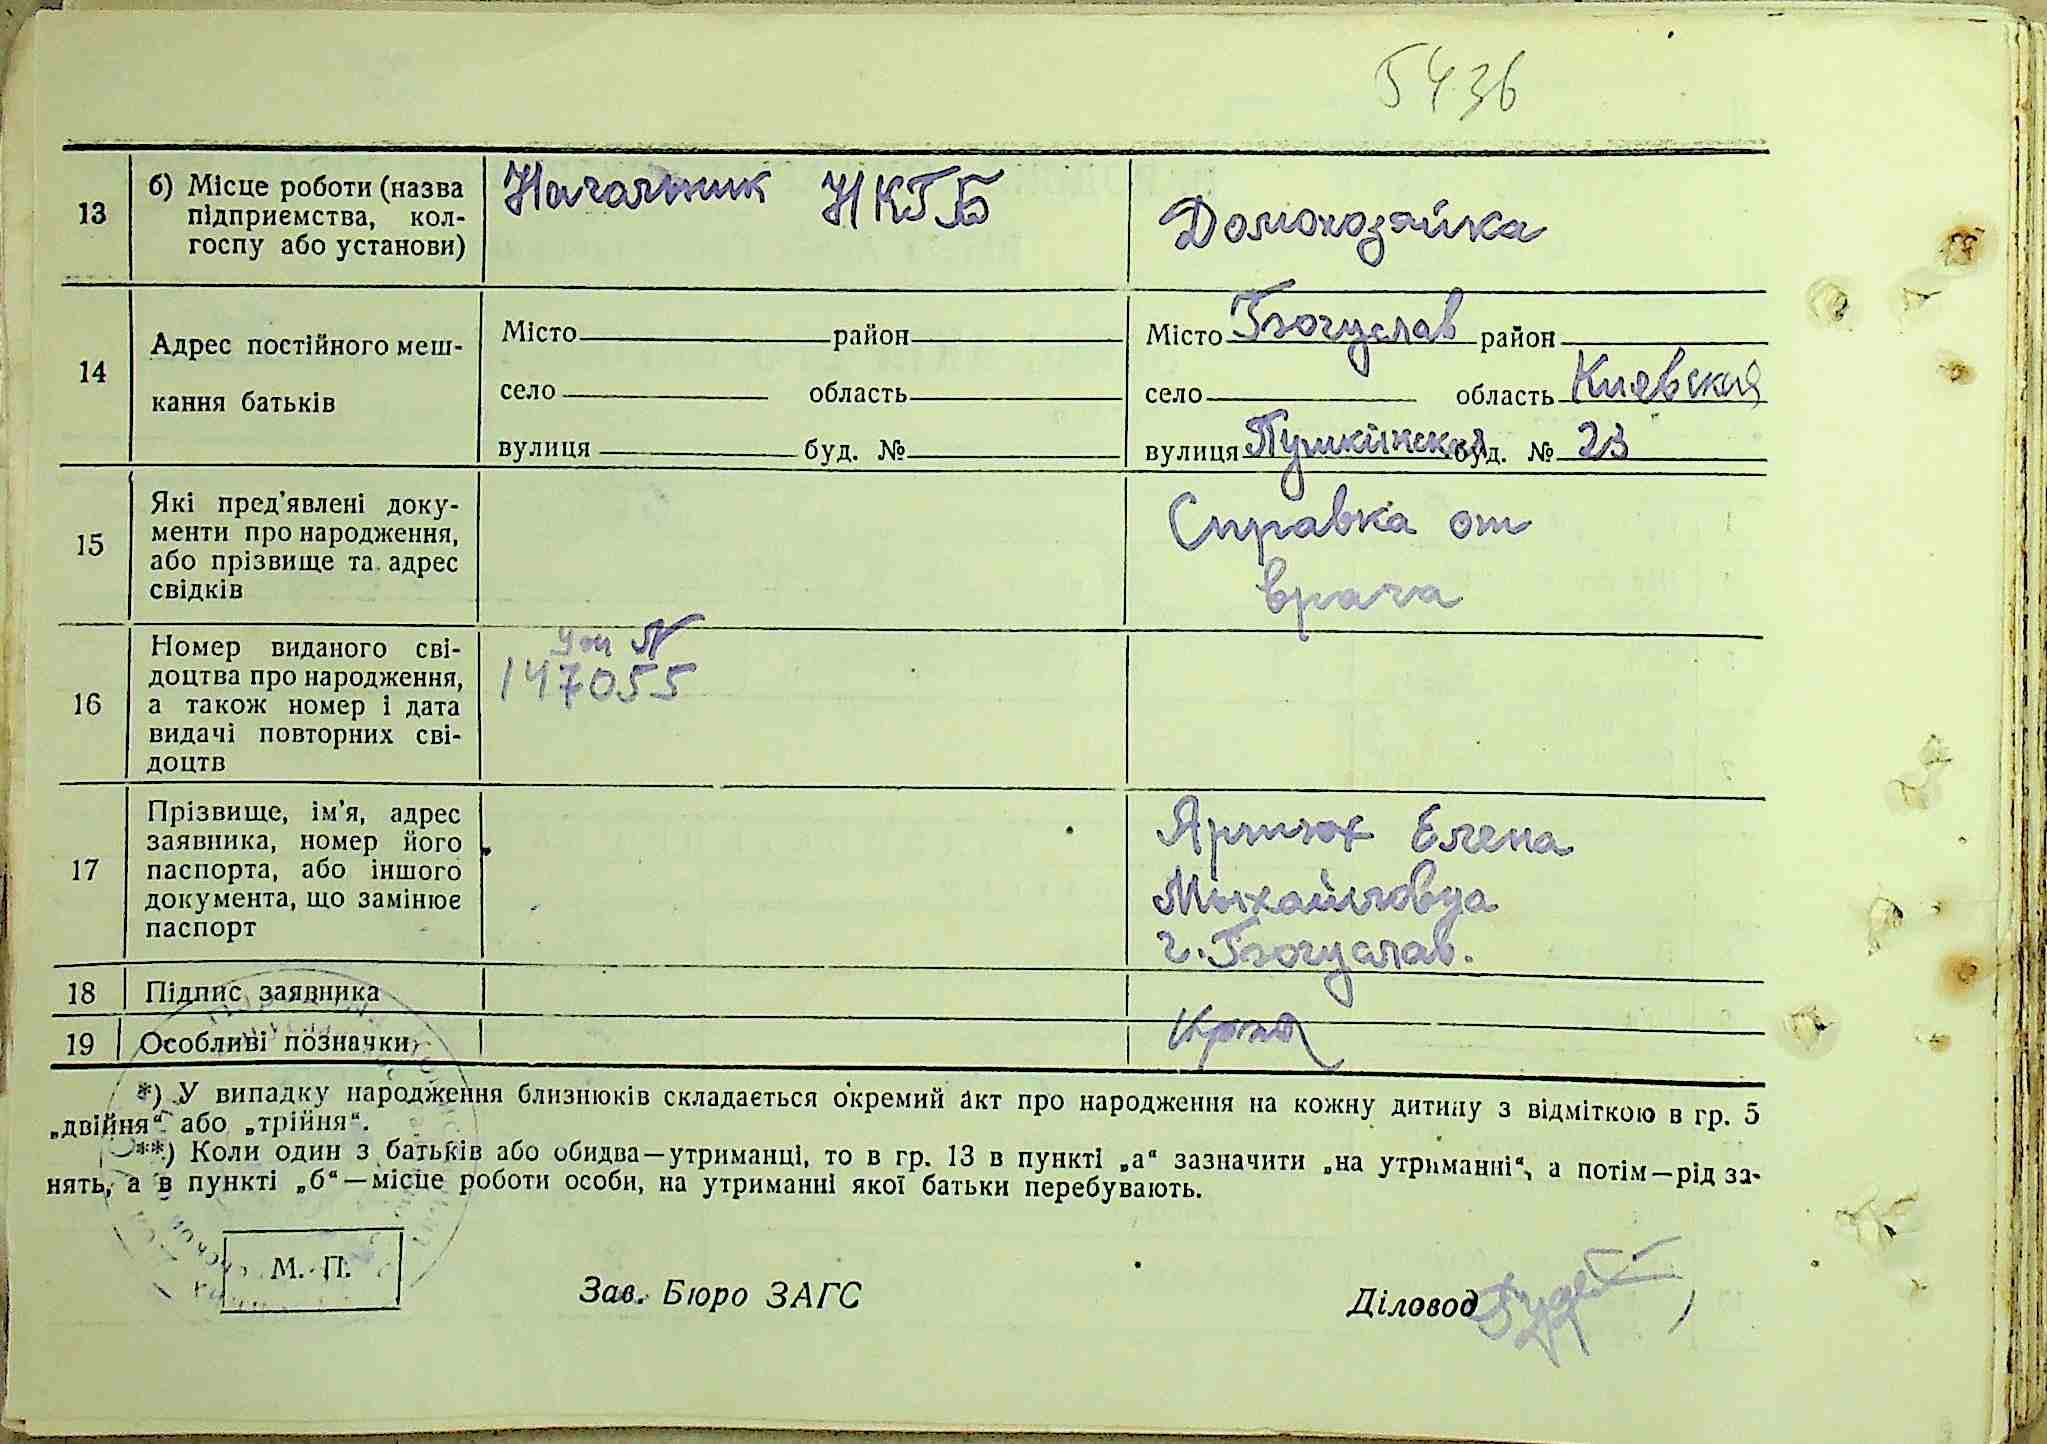 5436
13
б) Місце роботи (назва
підприємства, кол-
госпу або установи)
Начальник НКГБ
Домохозяйка
14
Адрес постійного меш-
кання батьків
Місто район
село область
вулиця буд. №
Місто Богуслав район
село область Киевская
вулиця Пушкинская буд. № 23
15
Які пред'явлені доку-
менти про народження,
або прізвище та адрес
свідків
Справка от
врача
16
Номер виданого сві-
доцтва про народження,
а також номер і дата
видачі повторних сві-
доцтв
N
147055
17
Прізвище, ім'я, адрес
заявника, номер його
паспорта, або іншого
документа, що замінює
паспорт
Елена
Михайловна
г. Богуслав.
18
Підпис заявника
19
Особливі позначки
*) У випадку народження близнюків складається окремий акт про народження на кожну дитину з відміткою в гр. 5
„двійня“ або „трійня“.
**) Коли один з батьків або обидва—утриманці, то в гр. 13 в пункті „а“ зазначити „на утриманні“, а потім—рід за-
нять, а в пункті „б“—місце роботи особи, на утриманні якої батьки перебувають.
М. П.
Зав. Бюро ЗАГС
Діловод